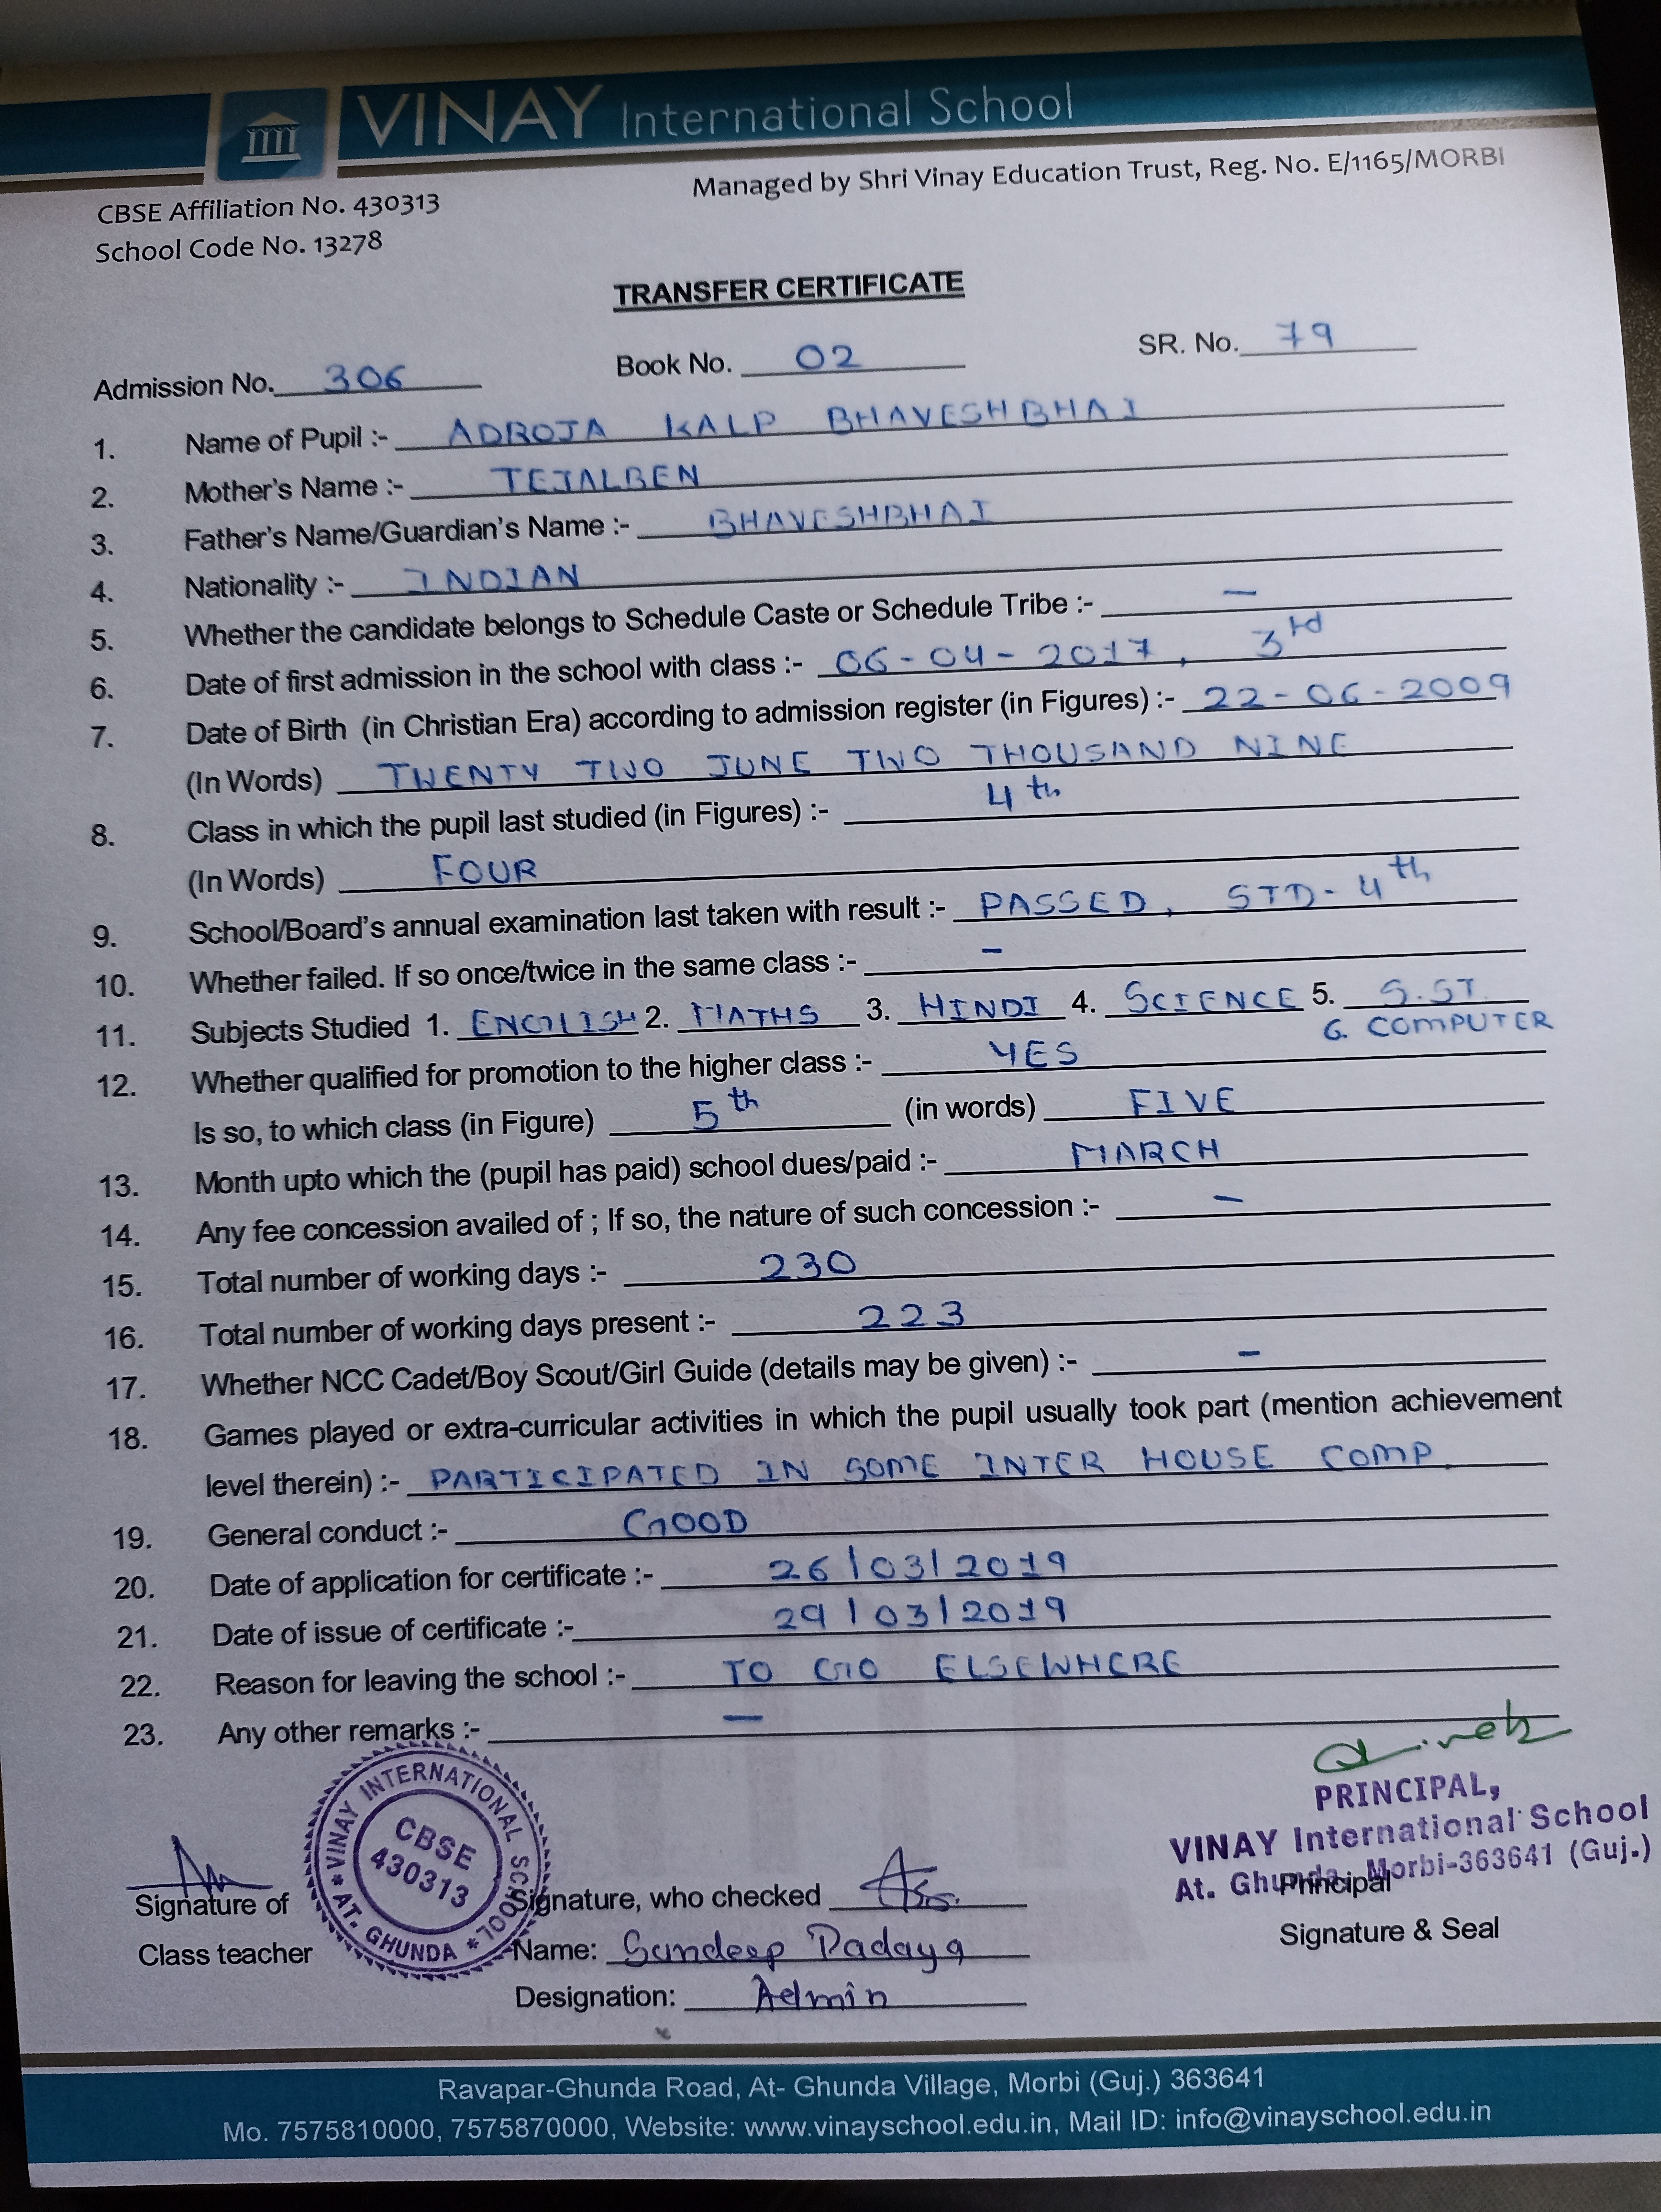 VINAY International School
Managed by Shri Vinay Education Trust, Reg. No. E/1165/MORBI
CBSE Affiliation No. 430313
School Code No. 13278
TRANSFER CERTIFICATE
Admission No. 306 Book No. 02 SR. No. 79
1. Name of Pupil :- ADROJA KALP BHAVESHBHAI
2. Mother's Name :- TEJALBEN
3. Father's Name/Guardian's Name :- BHAVESHBHAI
4. Nationality :- INDIAN
5. Whether the candidate belongs to Schedule Caste or Schedule Tribe :- —
6. Date of first admission in the school with class :- 06-04-2017, 3rd
7. Date of Birth (in Christian Era) according to admission register (in Figures) :- 22-06-2009
(In Words) TWENTY TWO JUNE TWO THOUSAND NINE
8. Class in which the pupil last studied (in Figures) :- 4th
(In Words) FOUR
9. School/Board's annual examination last taken with result :- PASSED, STD-4th
10. Whether failed. If so once/twice in the same class :- -
11. Subjects Studied 1. ENGLISH 2. MATHS 3. HINDI 4. SCIENCE 5. S.ST
6. COMPUTER
12. Whether qualified for promotion to the higher class :- YES
Is so, to which class (in Figure) 5th (in words) FIVE
13. Month upto which the (pupil has paid) school dues/paid :- MARCH
14. Any fee concession availed of ; If so, the nature of such concession :- -
15. Total number of working days :- 230
16. Total number of working days present :- 223
17. Whether NCC Cadet/Boy Scout/Girl Guide (details may be given) :- -
18. Games played or extra-curricular activities in which the pupil usually took part (mention achievement
level therein) :- PARTICIPATED IN SOME INTER HOUSE COMP.
19. General conduct :- GOOD
20. Date of application for certificate :- 26/03/2019
21. Date of issue of certificate :- 29/03/2019
22. Reason for leaving the school :- TO GO ELSEWHERE
23. Any other remarks :- —
VINAY INTERNATIONAL SCHOOL * AT. GHUNDA *
CBSE
430313
PRINCIPAL,
VINAY International School
At. Ghunda, Morbi-363641 (Guj.)
Principal
Signature & Seal
Signature of
Class teacher
Signature, who checked
Name: Sandeep Padaya
Designation: Admin
Ravapar-Ghunda Road, At- Ghunda Village, Morbi (Guj.) 363641
Mo. 7575810000, 7575870000, Website: www.vinayschool.edu.in, Mail ID: info@vinayschool.edu.in